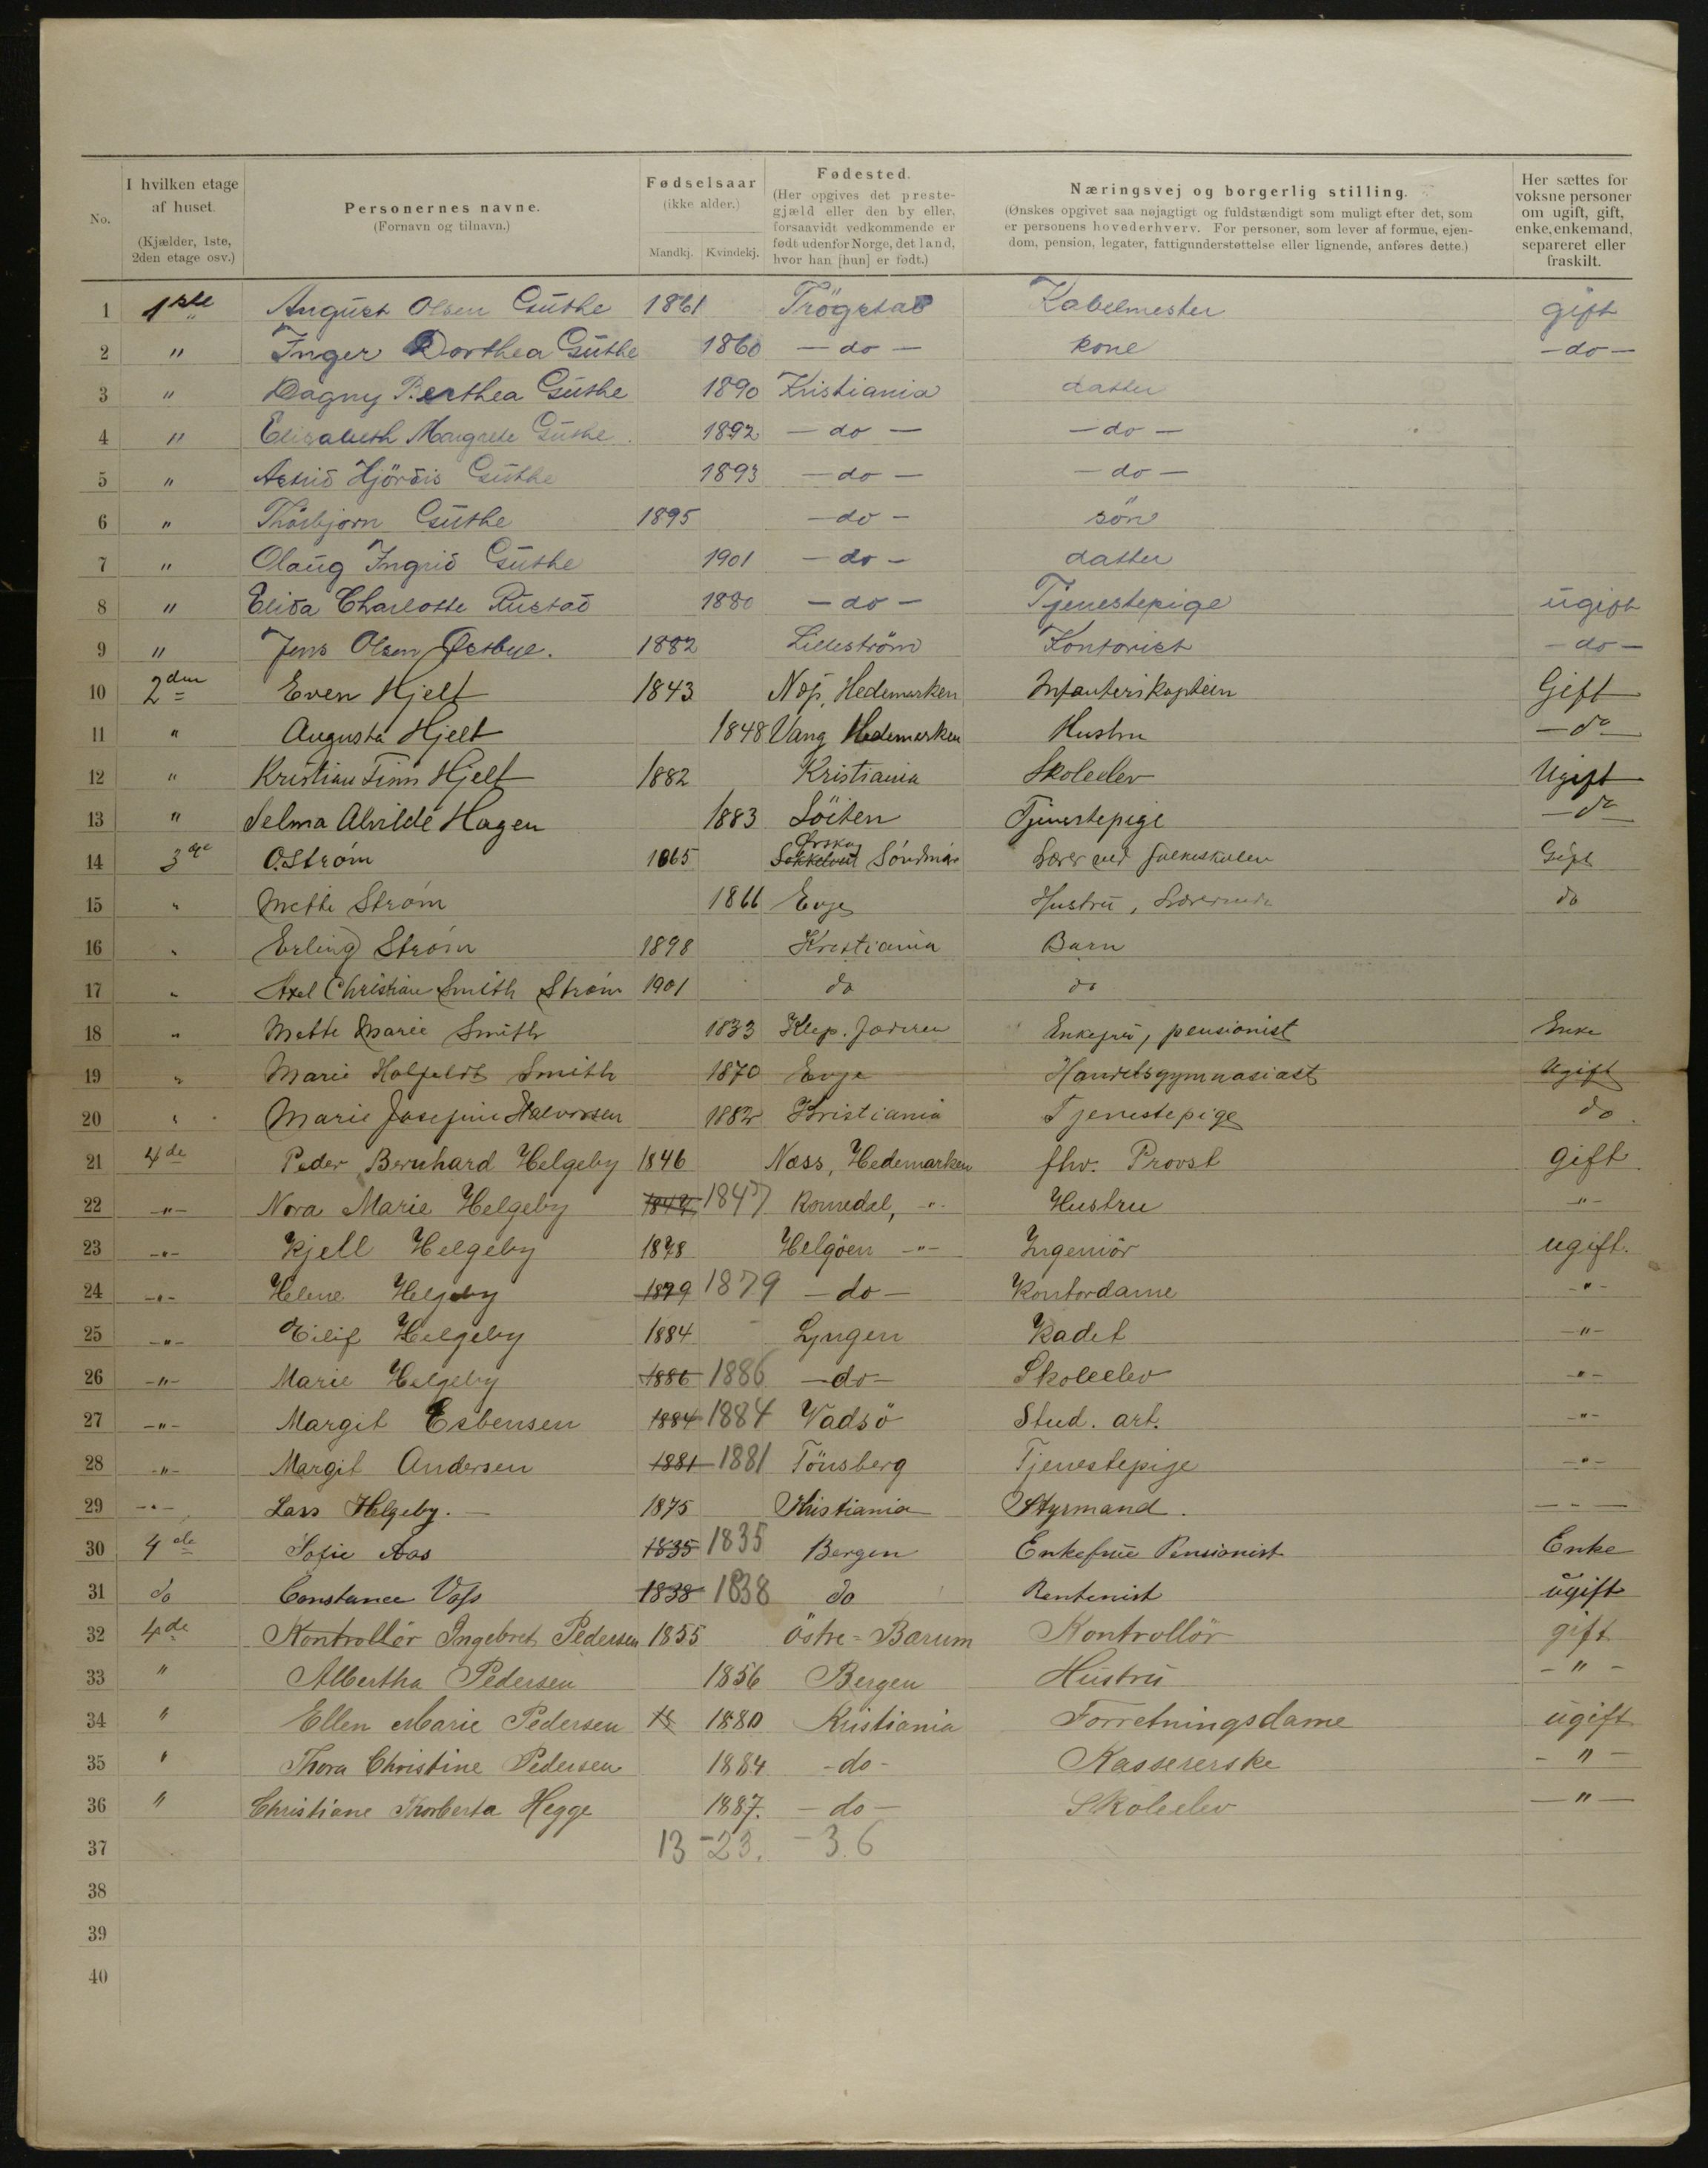 No.
I hvilken etage af huset. (Kjælder, 1ste, 2den etage osv.)
Personernes navne. (Fornavn og tilnavn.)
Fødselsaar (ikke alder.) Mandkj. Kvindekj.
Fødested. (Her opgives det prestegjæld eller den by eller, forsaavidt vedkommende er født udenfor Norge, det land, hvor han [hun] er født.)
Næringsvej og borgerlig stilling. (Ønskes opgivet saa nøjagtigt og fuldstændigt som muligt efter det, som er personens hovederhverv. For personer, som lever af formue, ejendom, pension, legater, fattigunderstøttelse eller lignende, anføres dette.)
Her sættes for voksne personer om ugift, gift, enke, enkemand, separeret eller fraskilt.
1 1ste August Olsen Guthe 1861 Trögstad Kabelmester gift
2 " Inger Dorthea Guthe 1860 — do — kone — do —
3 " Dagny Berthea Guthe 1890 Kristiania datter
4 " Elisabeth Margrete Guthe 1892 — do — — do —
5 " Astrid Hjördis Guthe 1893 — do — — do —
6 " Thorbjorn Guthe 1895 — do — sön
7 " Olaug Ingrid Guthe 1901 — do — datter
8 " Elida Charlotte Rustad 1880 — do — Tjenestepige ugift
9 " Jens Olsen Østbye. 1882 Lilleström Kontorist — do —
10 2den Even Hjelt 1843 Næs, Hedemarken Infanterikaptein Gift
11 " Augusta Hjelt 1848 Vang Hedemarken Hustru — do
12 " Kristian Finn Hjelt 1882 Kristiania Skoleelev Ugift
13 " Selma Alvilde Hagen 1883 Löiten Tjenestepige — do
14 3die O. Strøm 1865 Ørskog Söndmör Lærer ved folkeskolen Gift
15 " Mette Strøm 1866 Evje Hustru, Lærerinde do
16 " Erling Strøm 1898 Kristiania Barn
17 " Axel Christian Smith Strøm 1901 do do
18 " Mette Marie Smith 1833 Klep. Jæderen Enkefru, pensionist Enke
19 " Marie Holfeldt Smith 1870 Evje Handelsgymnasiast Ugift
20 " Marie Josefine Halvorsen 1882 Kristiania Tjenestepige do
21 4de Peder Bernhard Helgeby 1846 Næss, Hedemarken fhv. Provst gift
22 -"- Nora Marie Helgeby 1847 1847 Romedal, -"- Hustru -"-
23 -"- Kjell Helgeby 1878 Helgöen -"- Ingeniör ugift.
24 -"- Helene Helgeby 1879 1879 — do — Kontordame -"-
25 -"- Eilif Helgeby 1884 Lyngen Kadet -"-
26 -"- Marie Helgeby 1886 1886 — do — Skoleelev -"-
27 -"- Margit Esbensen 1884 1884 Vadsö Stud. art. -"-
28 -"- Margit Andersen 1881 1881 Tönsberg Tjenestepige -"-
29 -"- Lars Helgeby. — 1875 Kristiania Styrmand. — " —
30 4de Sofie Aas 1835 1835 Bergen Enkefrue Pensionist Enke
31 do Constance Voss 1838 1838 do Rentenist ugift
32 4de Kontrollör Ingebret Pedersen 1855 Östre-Bærum Kontrollör gift
33 " Albertha Pedersen 1856 Bergen Hustru - " -
34 " Ellen Marie Pedersen 18 1880 Kristiania Forretningsdame ugift
35 " Thora Christine Pedersen 1884 - do - Kassererske - " -
36 " Christiane Thorberta Hegge 1887. — do — Skoleelev — " —
37 13 - 23. - 36
38
39
40